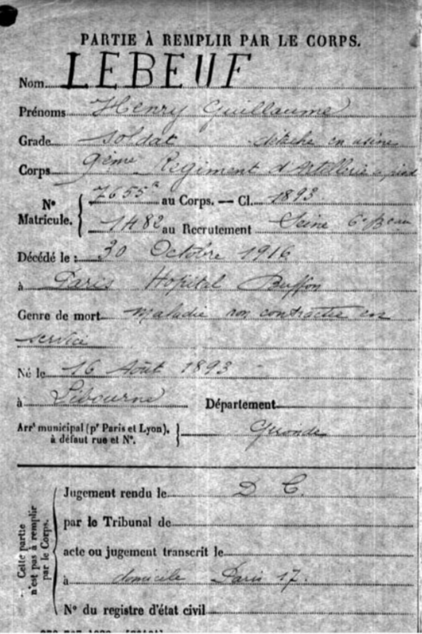 PARTIE À REMPLIR PAR LE CORPS.
Nom LEBEUF
Prénoms Henry Guillaume
Grade soldat détaché en usine
Corps 9ème Régiment d'Artillerie à pied
Nº Matricule. 7655ª au Corps. — Cl. 1893
1482 au Recrutement Seine 6e Bau
Décédé le : 30 Octobre 1916
à Paris Hopital Buffon
Genre de mort Maladie non contractée en
service
Né le 16 Août 1893
à Lebourne Département
Arrt municipal (pr Paris et Lyon), à défaut rue et Nº. Gironde
Cette partie n'est pas à remplir par le Corps.
Jugement rendu le D C.
par le Tribunal de
acte ou jugement transcrit le
à domicile Paris 17.
Nº du registre d'état civil